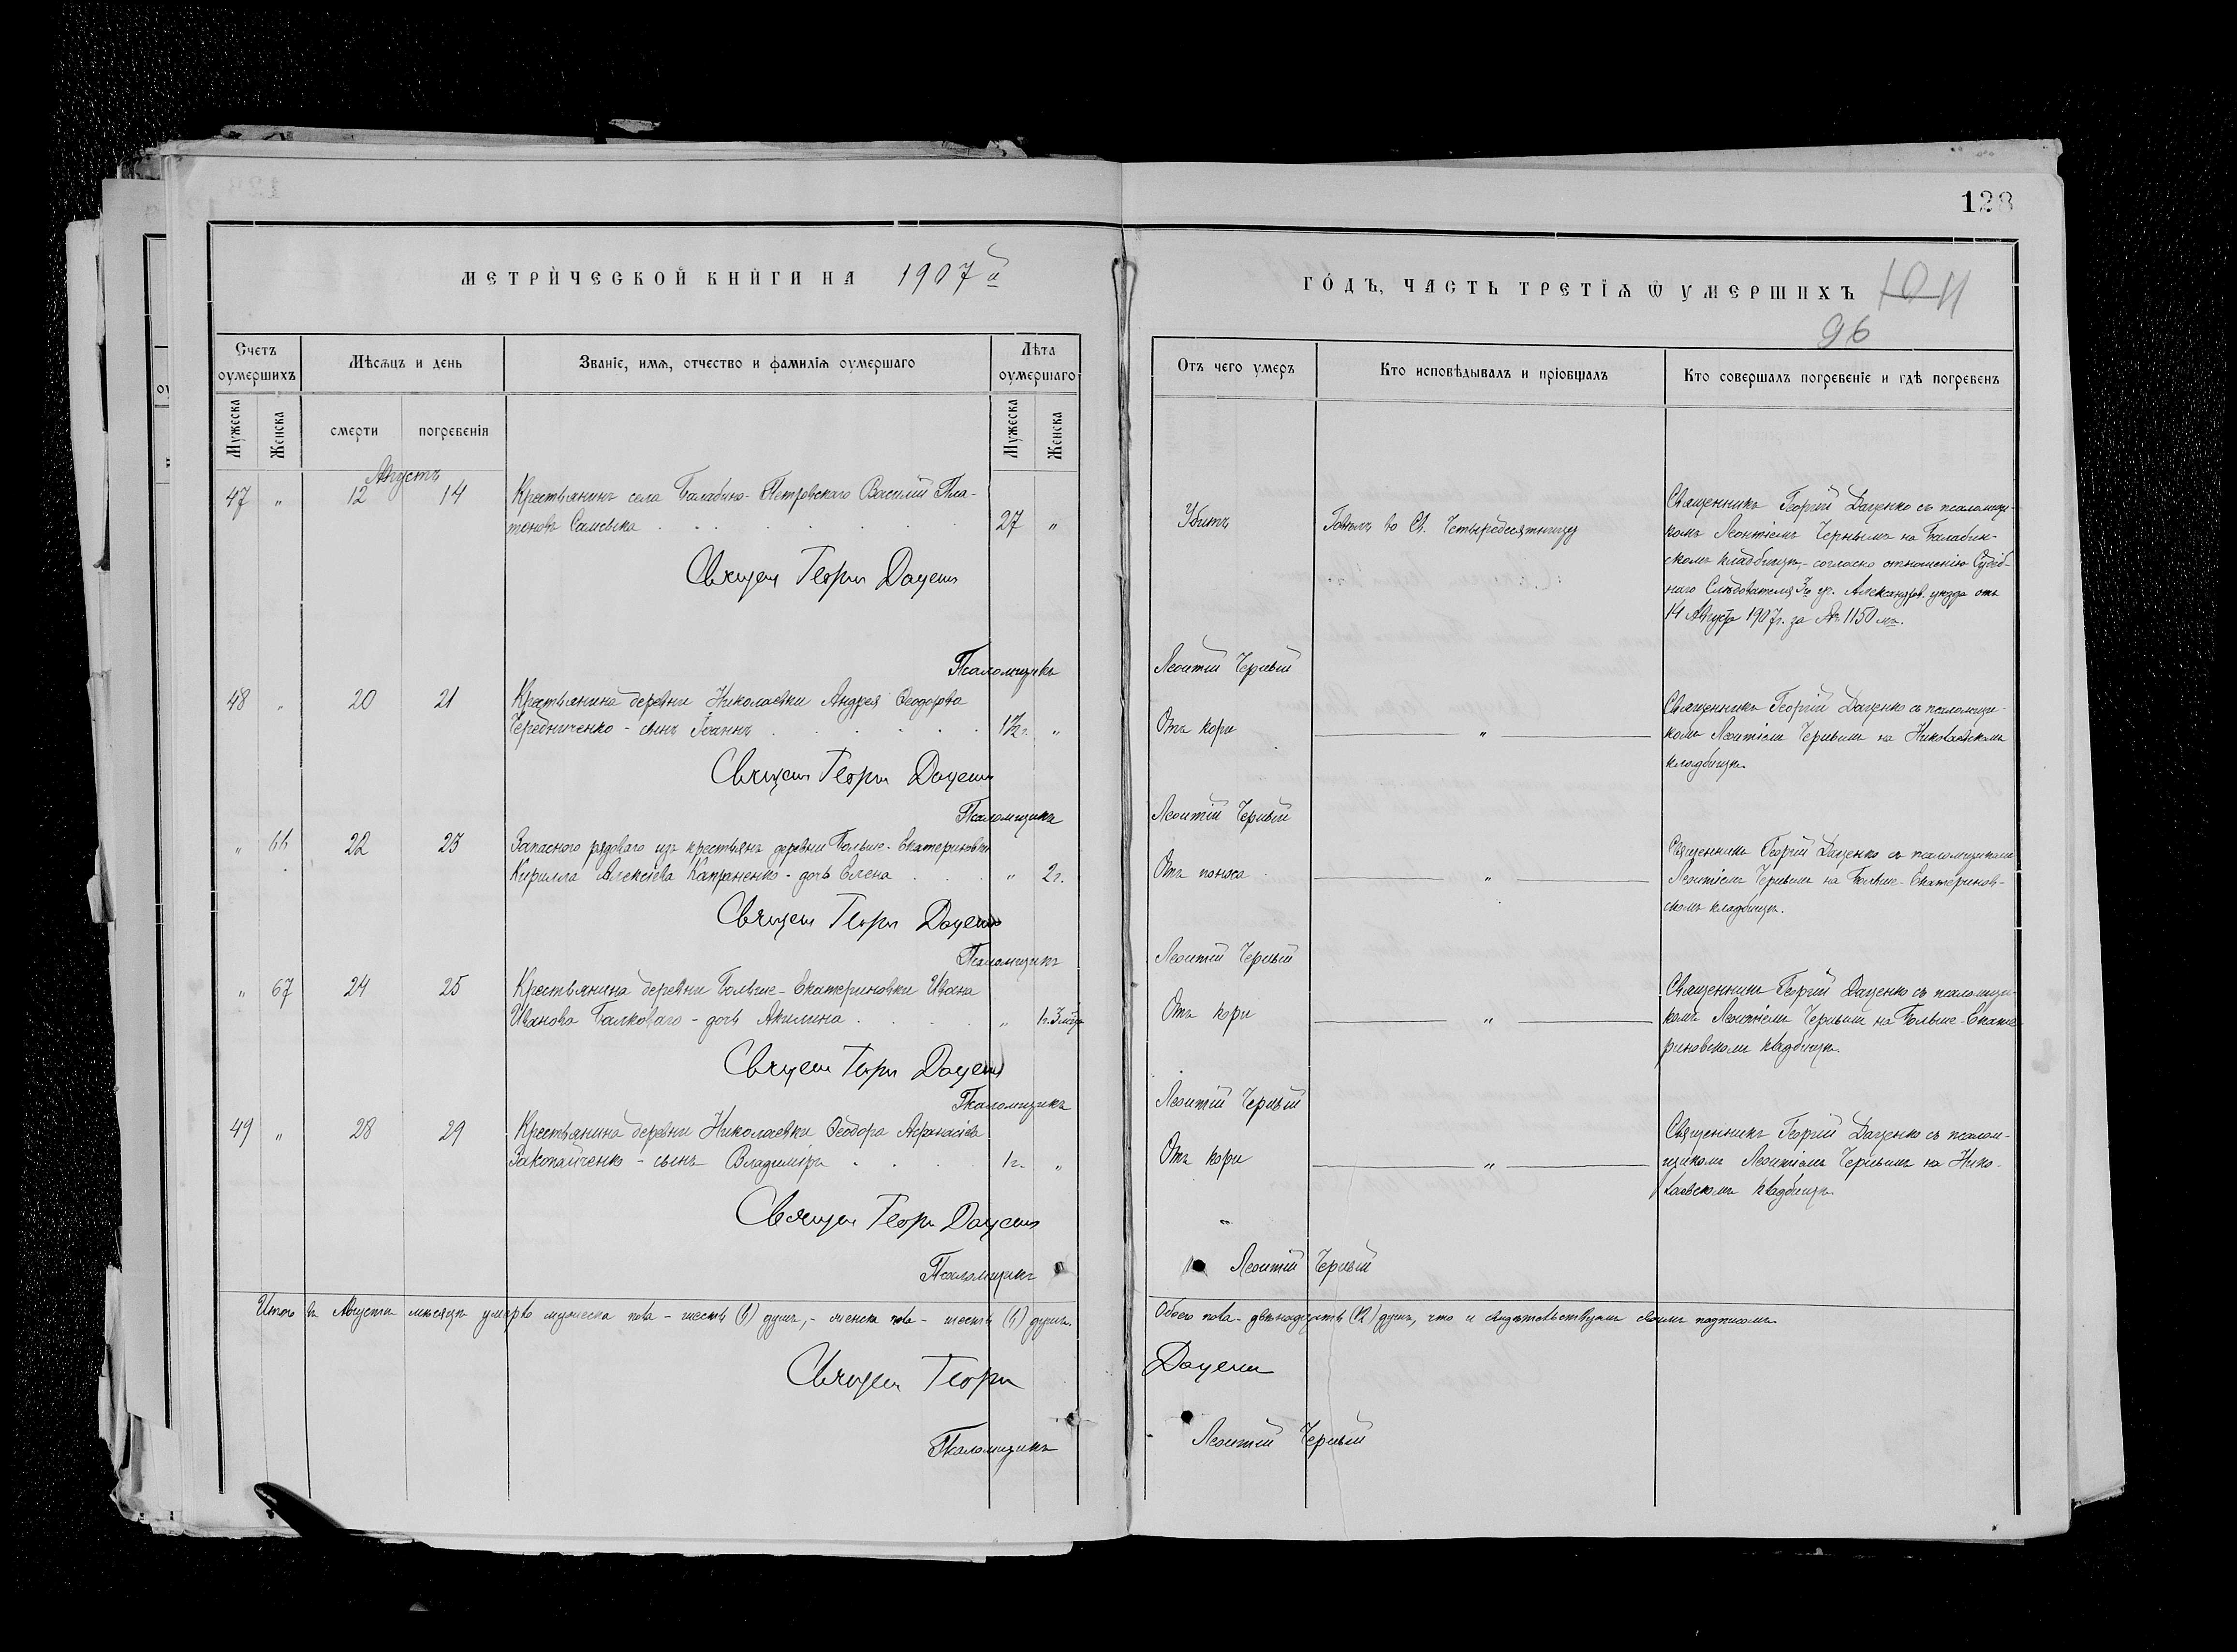 128
МЕТРИЧЕСКОЙ КНИГИ НА 1907й
ГОДЪ, ЧАСТЬ ТРЕТІѦ Ѿ УМЕРШИХЪ
96
Счетъ оумершихъ
Мѣсѧцъ и день
Званіе, имѧ, отчество и фамиліѧ оумершаго
Лѣта оумершаго
Мужеска
Женска
смерти
погребенія
Мужеска
Женска
Отъ чего умеръ
Кто исповѣдывалъ и пріобщалъ
Кто совершалъ погребеніе и гдѣ погребенъ
Августъ
47 " 12 14 Крестьянинъ села Балабино-Петровскаго Василій Пла-
тоновъ 27 "
Убитъ
Говѣлъ во Св. Четыредесятницу
Священникъ Георгій Даценко съ псаломщи-
комъ Леонтіемъ Чернымъ на Балабин-
скомъ кладбищѣ,- согласно отношенію Судеб-
наго Слѣдователя 3го уч. Александров. уѣзда отъ
14 Августа 1907г. за № 1150мъ.
Священ Георгій Даценко
Псаломщикъ Леонтій Черный
48 " 20 21 Крестьянина деревни Николаевки Андрея Ѳеодорова
Чередниченко - сынъ Іоаннъ 1½г. "
Отъ кори
"
Священникъ Георгій Даценко съ псаломщи-
комъ Леонтіемъ Чернымъ на Николаевскомъ
кладбищѣ.
Священ Георгій Даценко
Псаломщикъ Леонтій Черный
" 66 22 23 Запаснаго рядоваго изъ крестьянъ деревни Больше-Екатериновки
Кирилла Алексѣева Капраненко - дочь Елена " 2г.
Отъ поноса
"
Священникъ Георгій Даценко съ псаломщикомъ
Леонтіемъ Чернымъ на Больше-Екатеринов-
скомъ кладбищѣ.
Священ Георгій Даценко
Псаломщикъ Леонтій Черный
" 67 24 25 Крестьянина деревни Больше-Екатериновки Ивана
Иванова Балковаго - дочь Акилина " 1г. 3 мѣс.
Отъ кори
"
Священникъ Георгій Даценко съ псаломщи-
комъ Леонтіемъ Чернымъ на Больше-Екате-
риновскомъ кладбищѣ.
Священ Георгій Даценко
Псаломщикъ Леонтій Черный
49 " 28 29 Крестьянина деревни Николаевки Ѳеодора Аѳанасіева
Закопайченко - сынъ Владиміръ 1г. "
Отъ кори
"
Священникъ Георгій Даценко съ псалом-
щикомъ Леонтіемъ Чернымъ на Нико-
лаевскомъ кладбищѣ.
Священ Георгій Даценко
Псаломщикъ Леонтій Черный
Итого въ Августѣ мѣсяцѣ умерло мужеска пола - шесть (6) душъ, - женска пола - шесть (6) душъ.
Обоего пола - двѣнадцать (12) душъ, что и свидѣтельствуемъ своимъ подписомъ
Священ Георгій Даценко
Псаломщикъ Леонтій Черный